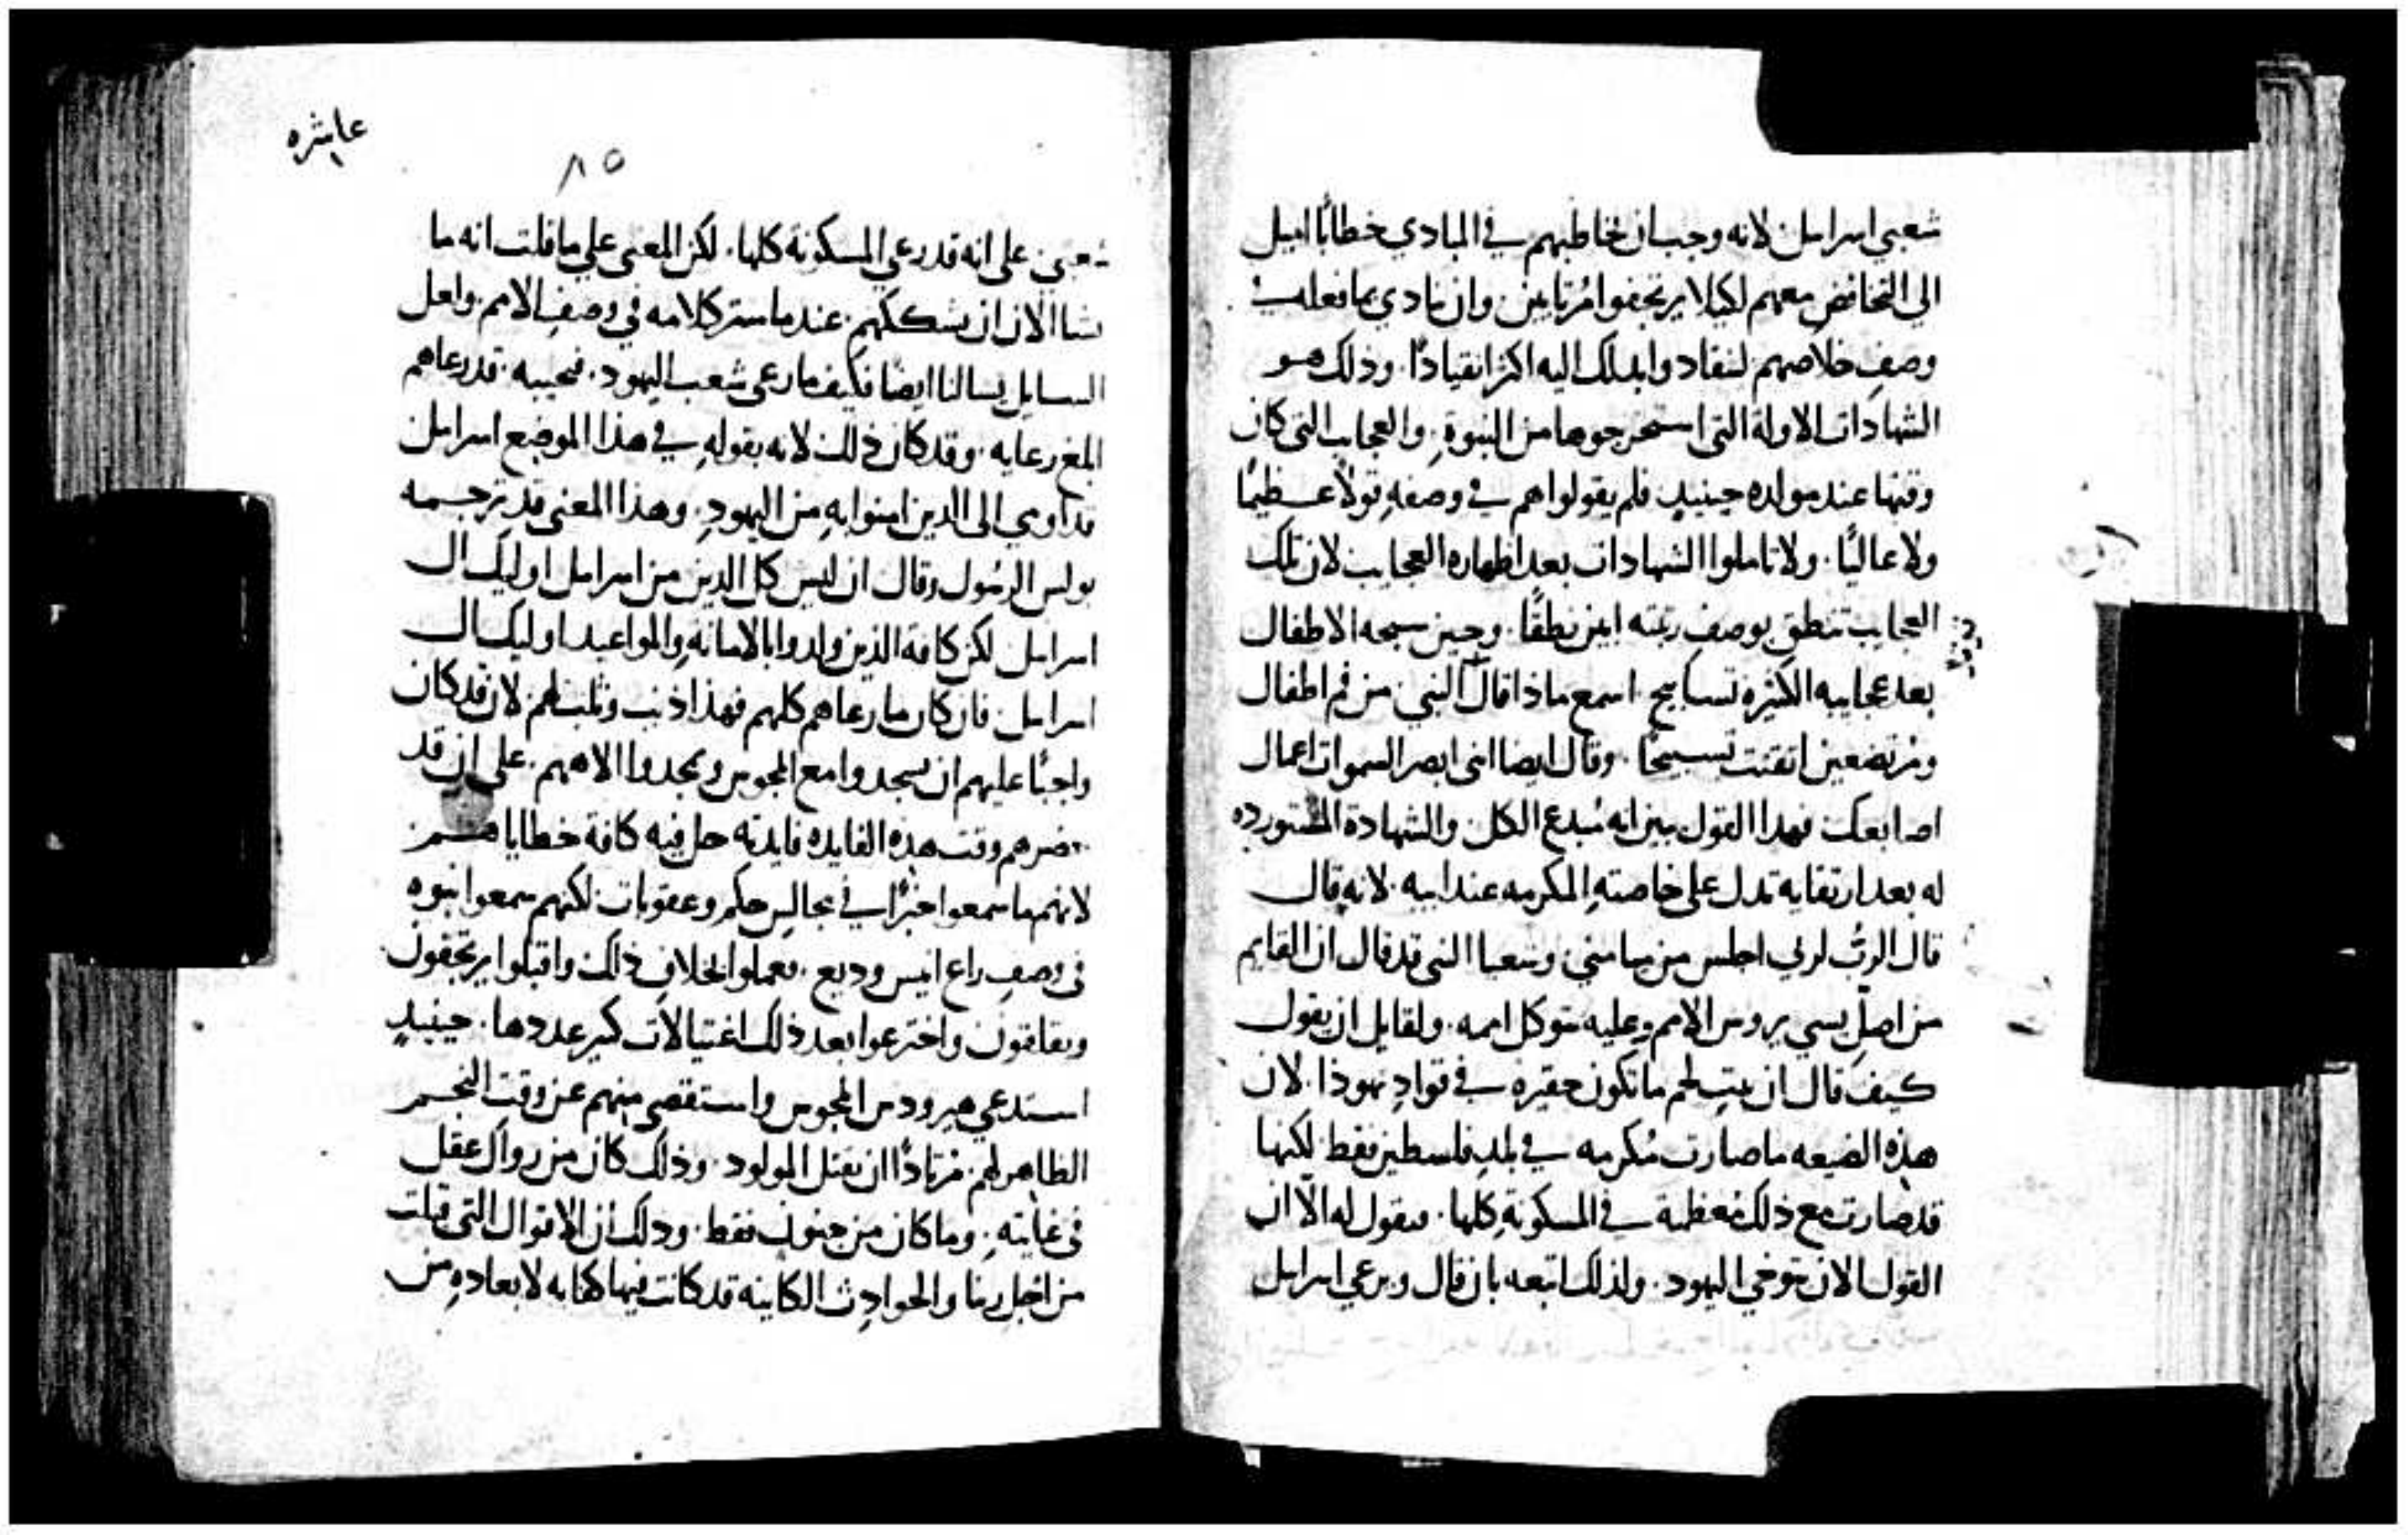 شعبي اسرايل لانه وجب ان يخاطبهم في المبادي خطابًا اميل
الى التخافض معهم لكيلا يرتجفوا مُرتابين وان نادي بما فعله في
وصفِ خلاصهم لنقاد وابدلك اليه اكثر انقيادًا وذلك هو
الشهادات الاولة التى استخرجوها من النبوةِ والعجايب التى كان
وقتها عند مولده حينيدٍ فلم يقولوا هم في وصفهِ قولاً عظيمًا
ولا عاليًا ولا تاملوا الشهادات بعد اظهاره العجايب لان تلك
العجايب تنطق بوصفِ رتبته ابين نطقًا وحين سبحه الاطفال
بعد عجايبه الكثيره تسابيح اسمع ماذا قال النبي من فم اطفال
ومُرتضعين اتقنت تسبيحًا وقال ايضا انى ابصر السموات اعمال
اصابعك فهدا القول يبين انه مُبدع الكل والشهادة المستورده
له بعد ارتقايه تدل على خاصتهِ المكرمه عند ابيه لانه قال
قال الربُ لربي اجلس من ميامني وشعيا النبى قد قال ان القايم
من اصلِ يسي يروس الامم وعليه تتوكل اممه ولقايل ان يقول
كيف قال ان بيت لحم ما تكون حقيره في قوادِ يهوذا لان
هذه الضيعه ما صارت مُكرمه في بلدِ فلسطين فقط لكنها
قد صارت مع ذلك مُعظمة في المسكونةِ كلها فيقول له الّا ان
القول الان يتوخي اليهود ولذلك اتبعه بان قال ويرعي اسرايل
عاشره
٨٥
شعبي على انه قد رعي المسكونة كلها لكن المعنى علي ما قلت انه ما
شا الان ان يشككهم عند ما ستر كلامه في وصفِ الامم ولعل
السايل يسالنا ايضًا فكيف ما رعى شعب اليهود فنجيبه قد رعاهم
ابلغ رعايه وقد كان ذلك لانه بقولهِ في هذا الموضع اسرايل
قد اومي الى الدين امنوا به من اليهودِ وهذا المعنى قد ترجمه
بولس الرسُول وقال ان ليس كل الدين من اسرايل اوليك ال
اسرايل لكن كافة الذين ولدوا بالامانةِ والمواعيد اوليك ال
اسرايل فان كان ما رعاهم كلهم فهذا ذنب وثلب لهم لان قد كان
واجبًا عليهم ان يسجدوا مع المجوس ويمجدوا الاههم على ان قد
حضرهم وقت هذه الفايده فايدته حل فيه كافة خطاياهم
لانهم ما سمعوا خبرًا في مجالسِ حكم وعقوبات لكنهم سمعوا نبوه
في وصفِ راع انيس وديع فعملوا بخلافِ ذلك واقبلوا يرتجفون
ويقلقون واخترعوا بعد ذلك اغتيالات كثير عددها حينيدٍ
استدعي هيرودس المجوس واستقصى منهم عن وقت النجم
الظاهر لهم مُرتادًا ان يقتل المولود وذلك كان من زوال عقل
في غايته وما كان من جنون فقط وذلك ان الاقوال التى قيلت
من اجل ربنا والحوادِث الكاينه قد كانت فيها كفايه لابعادهِ من